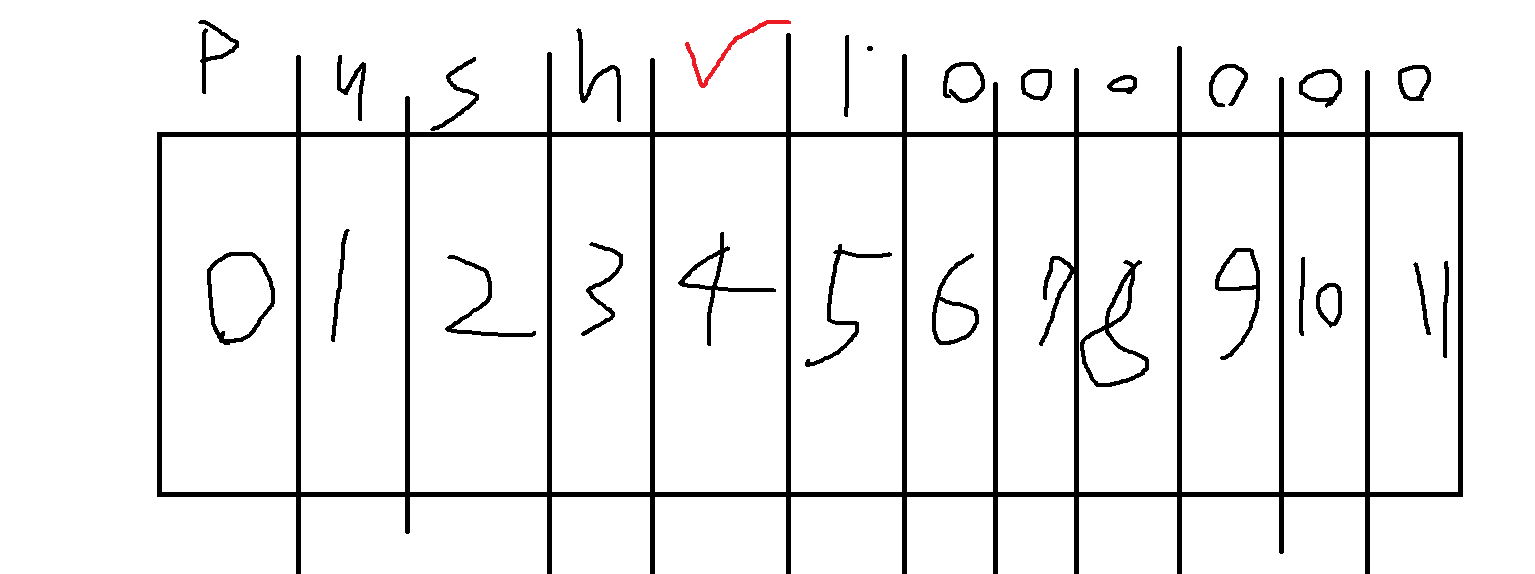 P u s h ✓ 1. 0 0 0 0 0 0
0 1 2 3 4 5 6 7 8 9 10 11